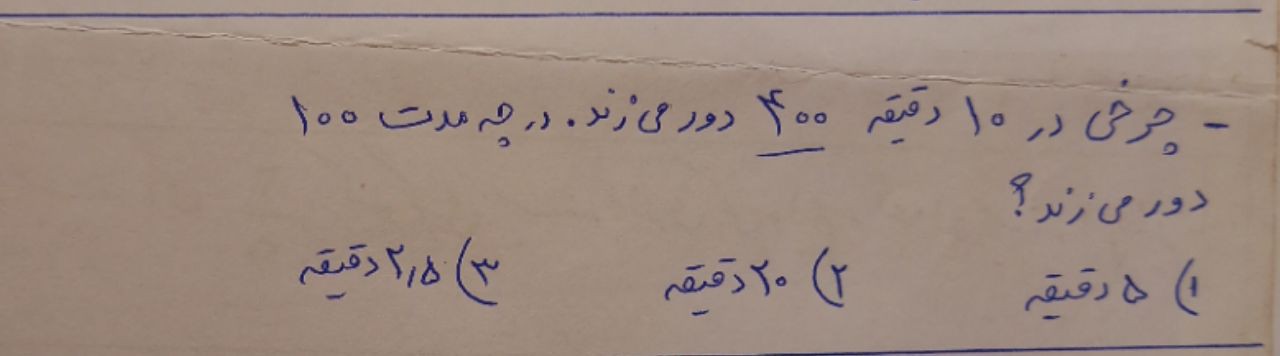 - چرخی در ۱۰ دقیقه ۴۰۰ دور می‌زند. در چه مدت ۱۰۰
دور می‌زند؟
۱) ۵ دقیقه ۲) ۲۰ دقیقه ۳) ۲,۵ دقیقه